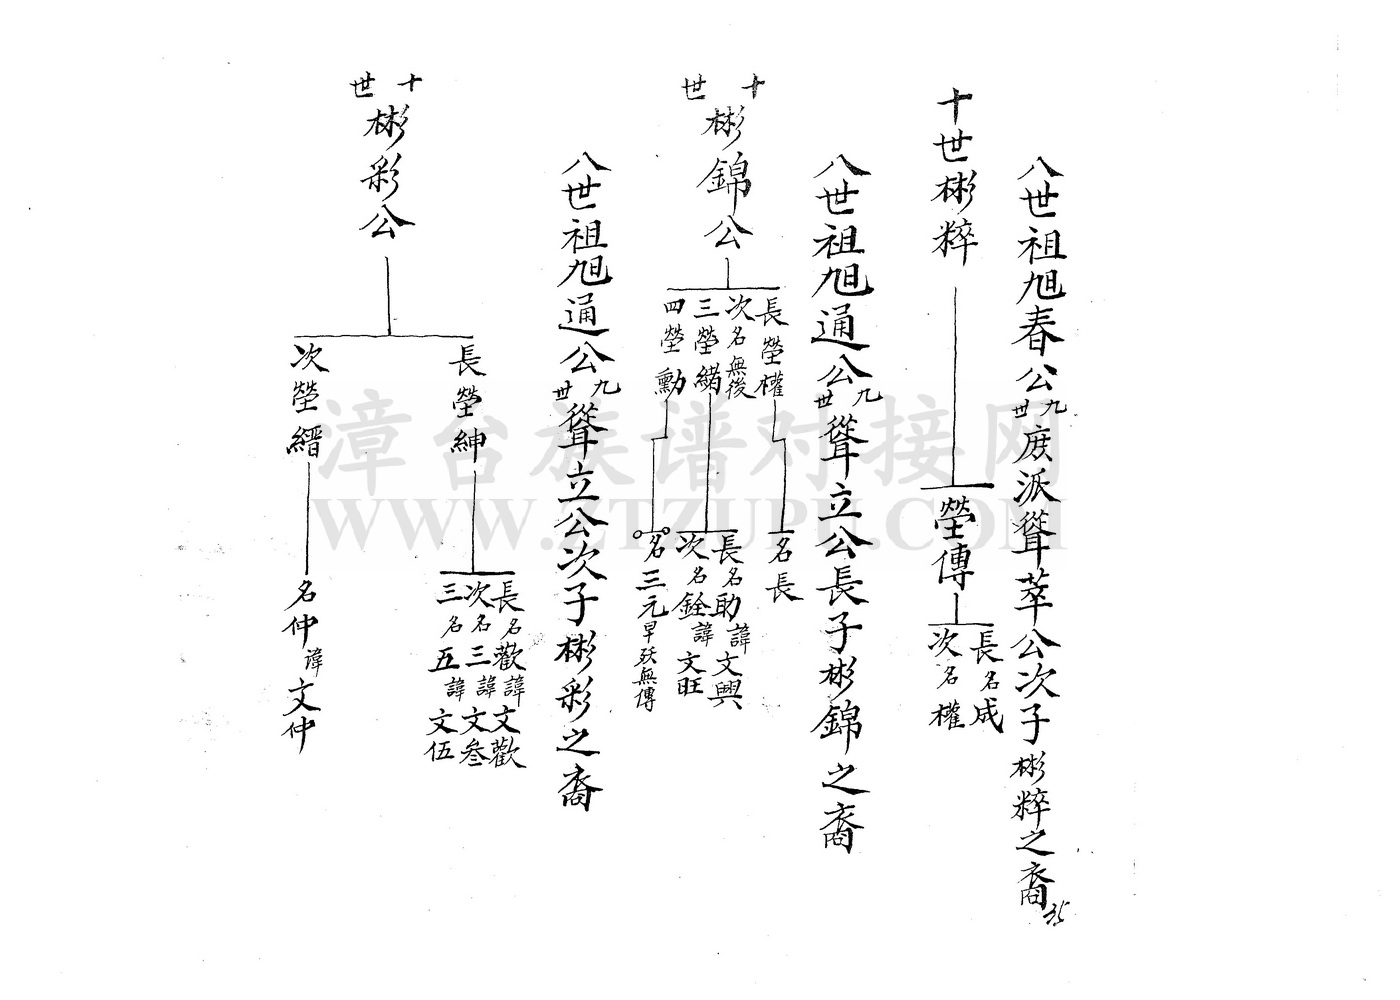 八世祖旭春公九世庶派聳萃公次子彬粹之裔
35
十世彬粹
瑩傳
長名成
次名權
八世祖旭通公九世聳立公長子彬錦之裔
十世彬錦公
長瑩權
次名無後
三瑩緒
四瑩勳
名長
長名助諱文興
次名銓諱文旺
名三元早殀無傳
八世祖旭通公九世聳立公次子彬彩之裔
十世彬彩公
長瑩紳
次瑩縉
長名歡諱文歡
次名三諱文叄
三名五諱文伍
名仲諱文仲
漳台族谱对接网
WWW.ZTZUPU.COM